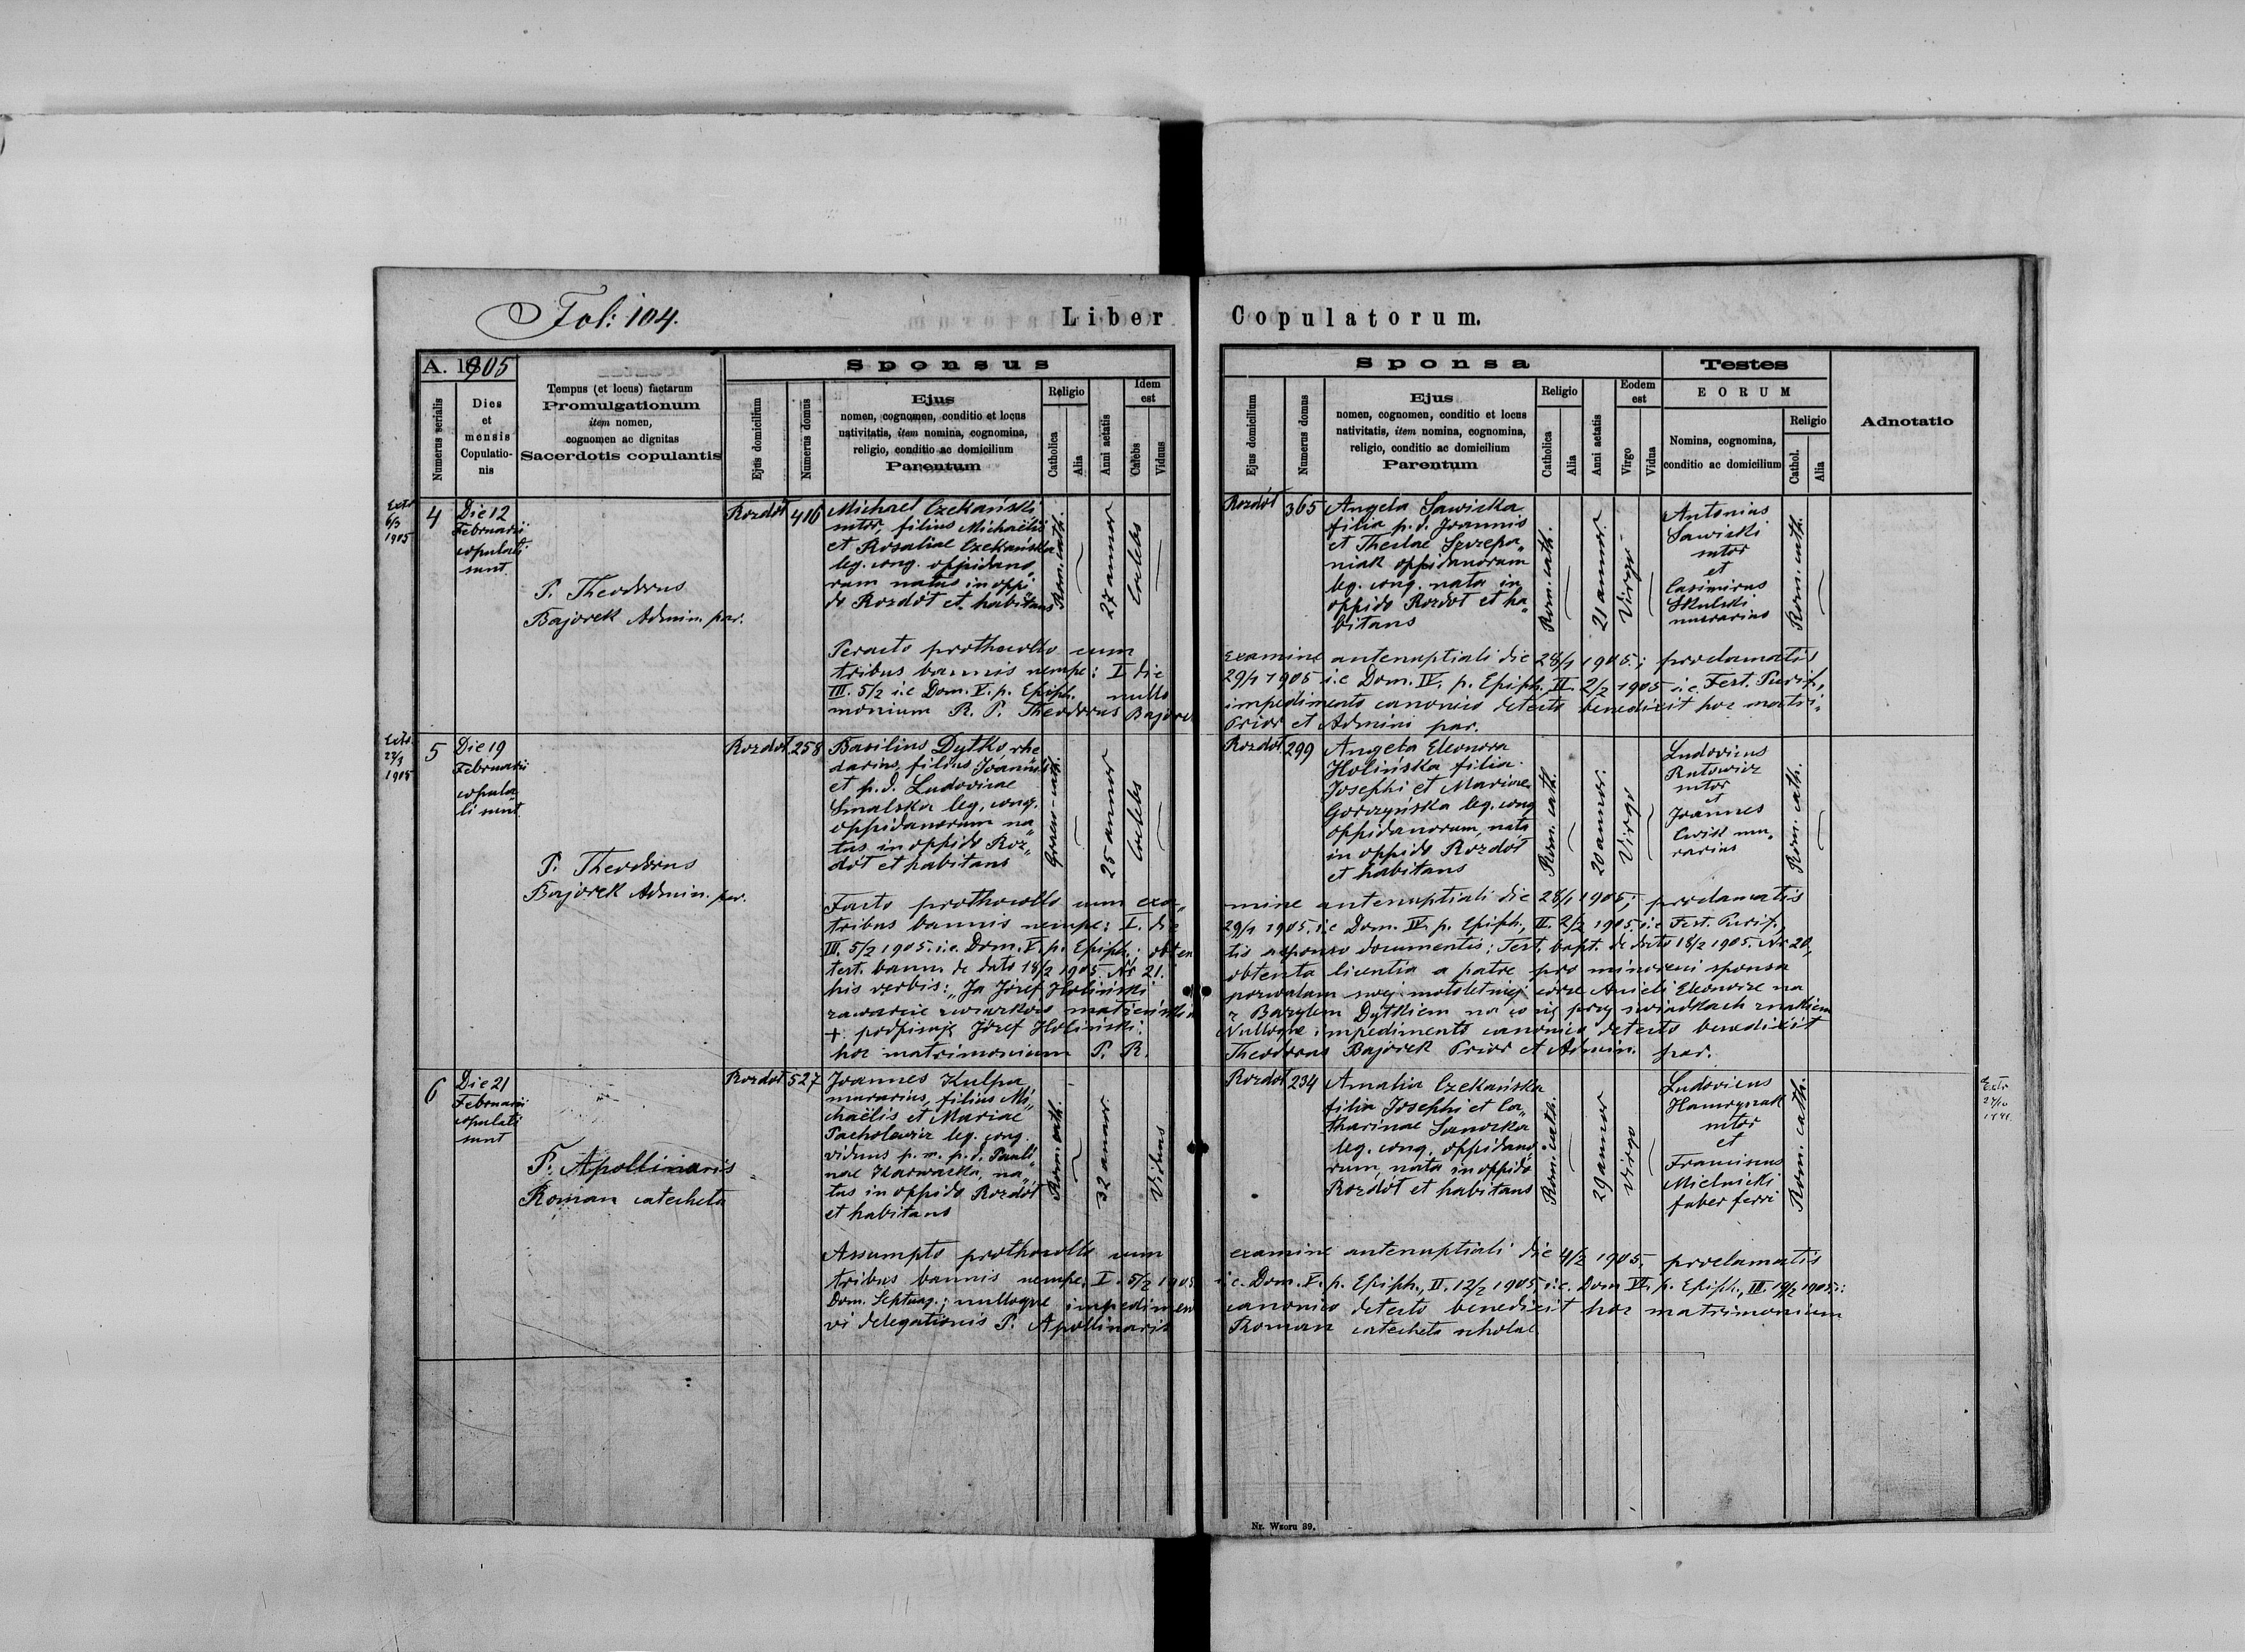 Fol: 104.
Liber Copulatorum.
A. 1905
Numerus serialis
Dies
et
mensis
Copulatio-
nis
Tempus (et locus) factarum
Promulgationum
item nomen,
cognomen ac dignitas
Sacerdotis copulantis
Sponsus
Ejus domicilium
Numerus domus
Ejus
nomen, cognomen, conditio et locus
nativitatis, item nomina, cognomina,
religio, conditio ac domicilium
Parentum
Religio
Catholica
Alia
Anni aetatis
Idem
est
Cælebs
Viduus
Sponsa
Ejus domicilium
Numerus domus
Ejus
nomen, cognomen, conditio et locus
nativitatis, item nomina, cognomina,
religio, conditio ac domicilium
Parentum
Religio
Catholica
Alia
Anni aetatis
Eodem
est
Virgo
Vidua
Testes
EORUM
Nomina, cognomina,
conditio ac domicilium
Religio
Cathol.
Alia
Adnotatio
Extr.
6/3
1905
4
Die 12
Februarii
copulati
sunt.
P. Theodorus
Bajorek Admin. par.
Rozdół
416
Michael Czekański
sutor, filius Michaëlis
et Rosaliae Czekańska
leg. conj. oppidano„
rum natus in oppi„
do Rozdół et habitans
Rom. cath.
27 annor.
Coelebs
Rozdół
365
Angela Sawicka
filia p. d. Joannis
et Theclae Szczepa„
niak oppidanorum
leg. conj. nata in
oppido Rozdół et ha„
bitans
Rom. cath.
21 annor.
Virgo
Antonius
Sawicki
sutor
et
Casimirus
Skulski
murarius
Rom. cath.
Peracto prothocollo cum examine antenuptiali die 28/1 1905.; proclamatis
tribus bannis nempe: I die 29/1 1905 i.e Dom. IV. p. Epiph., II. 2/2 1905 i.e. Fest. Purif.,
III. 5/2 i.e Dom. V. p. Epiph. nullo impedimento canonico detecto benedixit hoc matri„
monium R. P. Theodorus Bajorek Prior et Admini par.
Extr.
22/3
1905
5
Die 19
Februarii
copula„
ti sunt.
P. Theodorus
Bajorek Admin. par.
Rozdół
258
Basilius Dytko rhe
darius, filius Joannis
et p. d. Ludovicae
Smalska leg. conj.
oppidanorum na„
tus in oppido Roz„
dół et habitans
Graeco-cath.
25 annor
Coelebs
Rozdół
299
Angela Eleonora
Holińska filia
Josephi et Mariae
Gorczyńska leg. conj
oppidanorum, nata
in oppido Rozdół
et habitans
Rom. cath.
20 annor.
Virgo
Ludovicus
Rutowicz
sutor
et
Joannes
Ćwikł mu„
rarius
Rom. cath.
Facto prothocollo cum exa„mine antenuptiali die 28/1 1905; proclamatis
tribus bannis nempe: I. die 29/1 1905. i.e Dom. IV. p. Epiph., II. 2/2 1905. i.e Fest. Purif.,
III. 5/2 1905. i.e. Dom. V. p. Epiph.; obten tis a sponso documentis: Test. bapt. de dato 18/2 1905. Nr 20,
test. bann. de dato 18/2 1905. Nr 21. obtenta licentia a patre pro minoreni sponsa
his verbis: „Ja Józef Holiński pozwalam swej małoletniej córce Anieli Eleonorze na
zawarcie związków małżeńskich z Bazylem Dytkiem na co się przy świadkach znakiem
+ podpisuję Józef Holiński. Nulloque impedimento canonico detecto benedixit
hoc matrimonium P. R. Theodorus Bajorek Prior et Admin. par.
6
Die 21
Februarii
copulati
sunt
P. Apollinaris
Roman catecheta
Rozdół
527
Joannes Kulpa
murarius, filius Mi„
chaëlis et Mariae
Pacholewicz leg. conj.
viduus p. m. p. d. Pauli„
nae Karwacka, na„
tus in oppido Rozdół
et habitans
Rom. cath.
32 annor.
Viduus
Rozdół
234
Amalia Czekańska
filia Josephi et Ca„
tharinae Sanocka
leg. conj. oppidano„
rum, nata in oppido
Rozdół et habitans
Rom. cath.
29 annor
Virgo
Ludovicus
Hamryszak
sutor
et
Franciscus
Mielnicki
faber ferri
Rom. cath.
Extr
Assumpto prothocollo cum examine antenuptiali die 4/2 1905; proclamatis
tribus bannis nempe: I. 5/2 1905 i.e. Dom. V. p. Epiph., II. 12/2 1905, i.e. Dom VI. p. Epiph., III. 19/2 1905. i:
Dom. Septuag.; nulloque impedimen canonico detecto benedixit hoc matrimonium
vi delegationis P. Apollinaris Roman catecheta scholae
Nr. Wzoru 39.